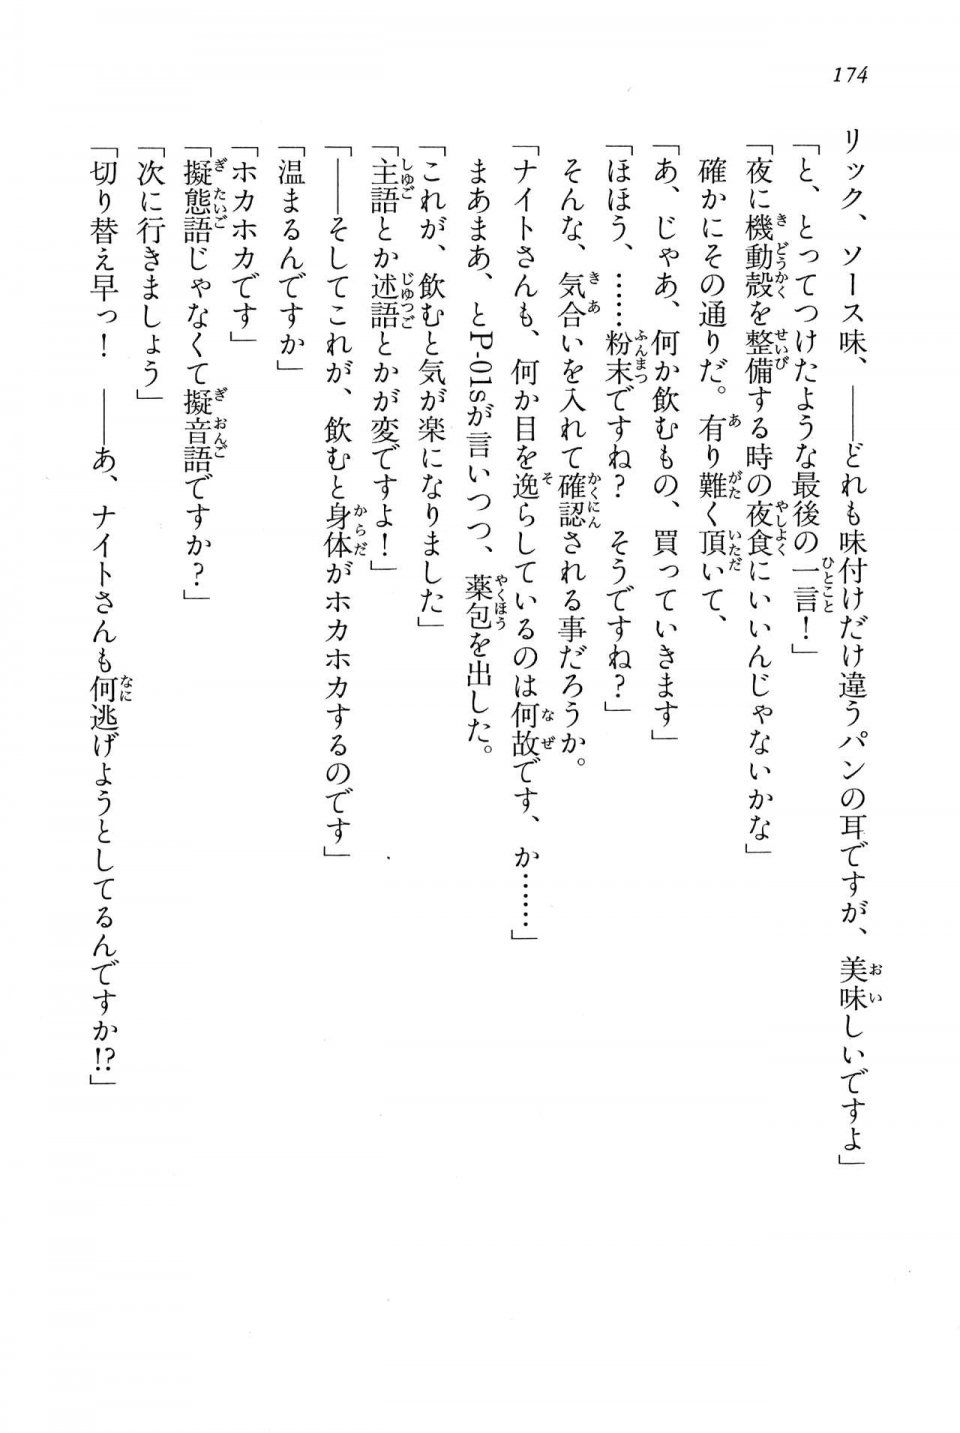 174
リック、ソース味、――どれも味付けだけ違うパンの耳ですが、美味しいですよ」
「と、とってつけたような最後の一言！」
「夜に機動殻を整備する時の夜食にいいんじゃないかな」
確かにその通りだ。有り難く頂いて、
「あ、じゃあ、何か飲むもの、買っていきます」
「ほほう、……粉末ですね？　そうですね？」
そんな、気合いを入れて確認される事だろうか。
「ナイトさんも、何か目を逸らしているのは何故です、か……」
まあまあ、とP-01sが言いつつ、薬包を出した。
「これが、飲むと気が楽になりました」
「主語とか述語とかが変ですよ！」
「――そしてこれが、飲むと身体がホカホカするのです」
「温まるんですか」
「ホカホカです」
「擬態語じゃなくて擬音語ですか？」
「次に行きましょう」
「切り替え早っ！　――あ、ナイトさんも何逃げようとしてるんですか!?」